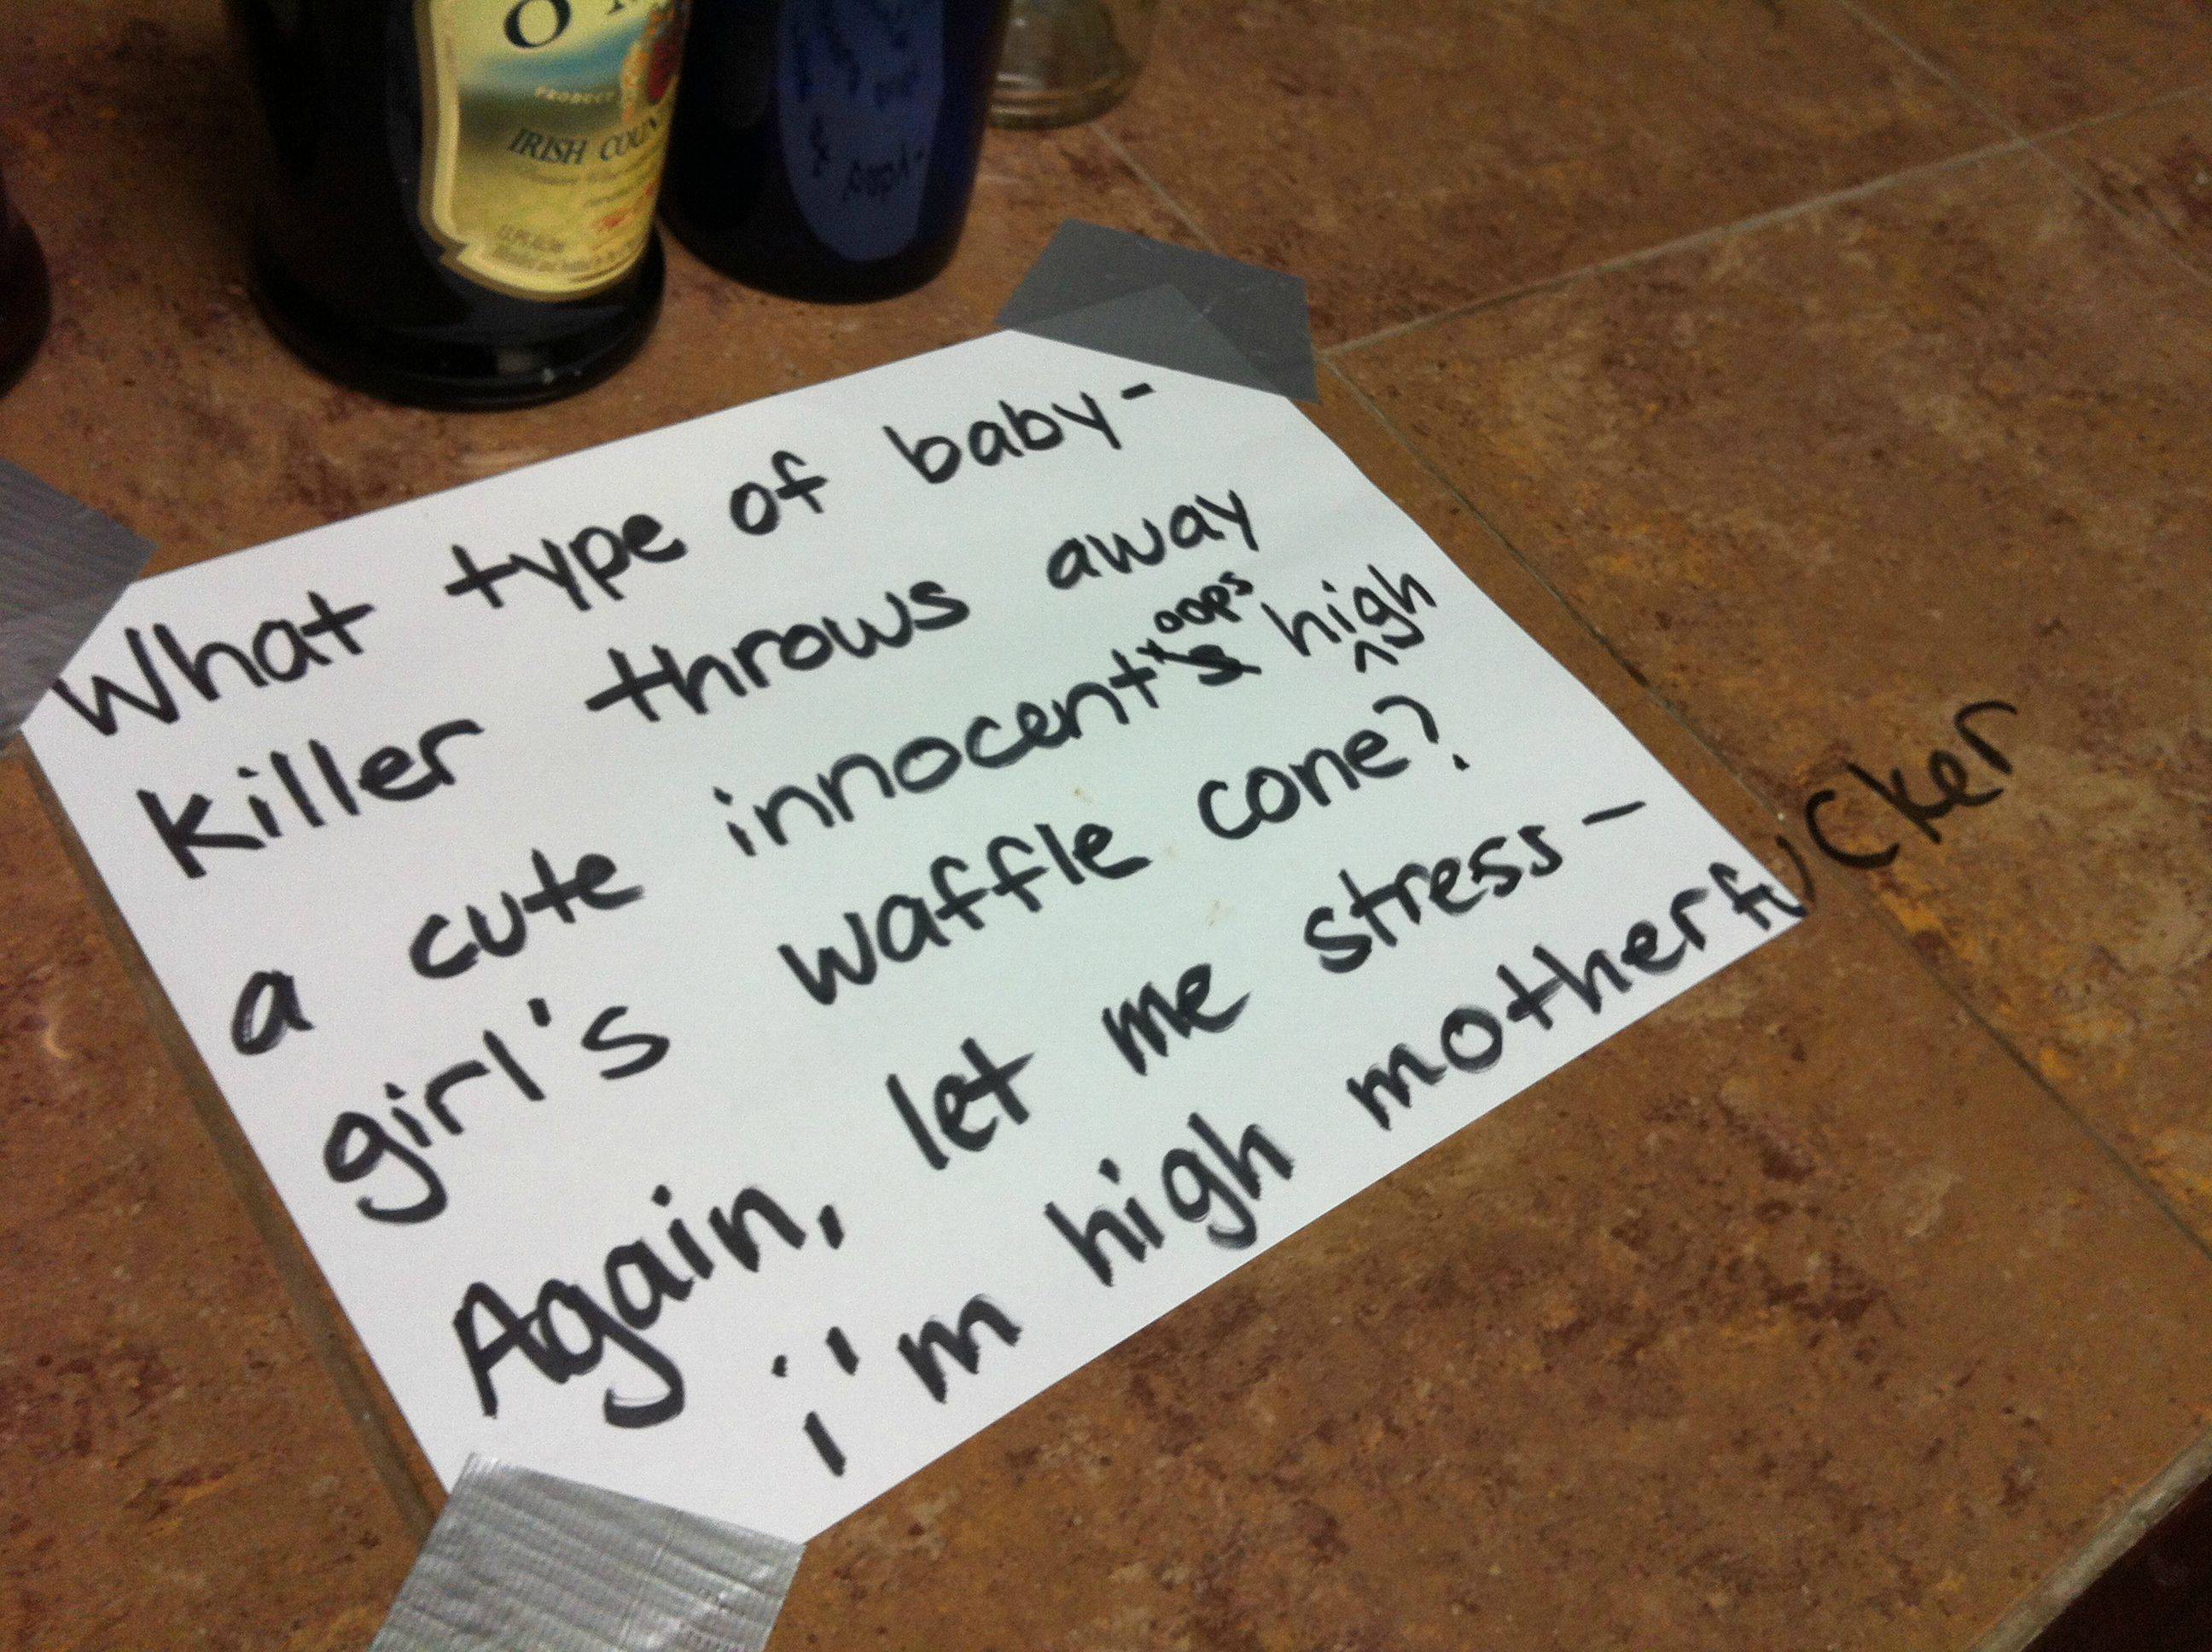 O
PRODUCT
IRISH COUN
What type of baby-
killer throws away
oops
a cute innocent's high
girl's waffle cone?
Again, let me stress-
i'm high motherfucker